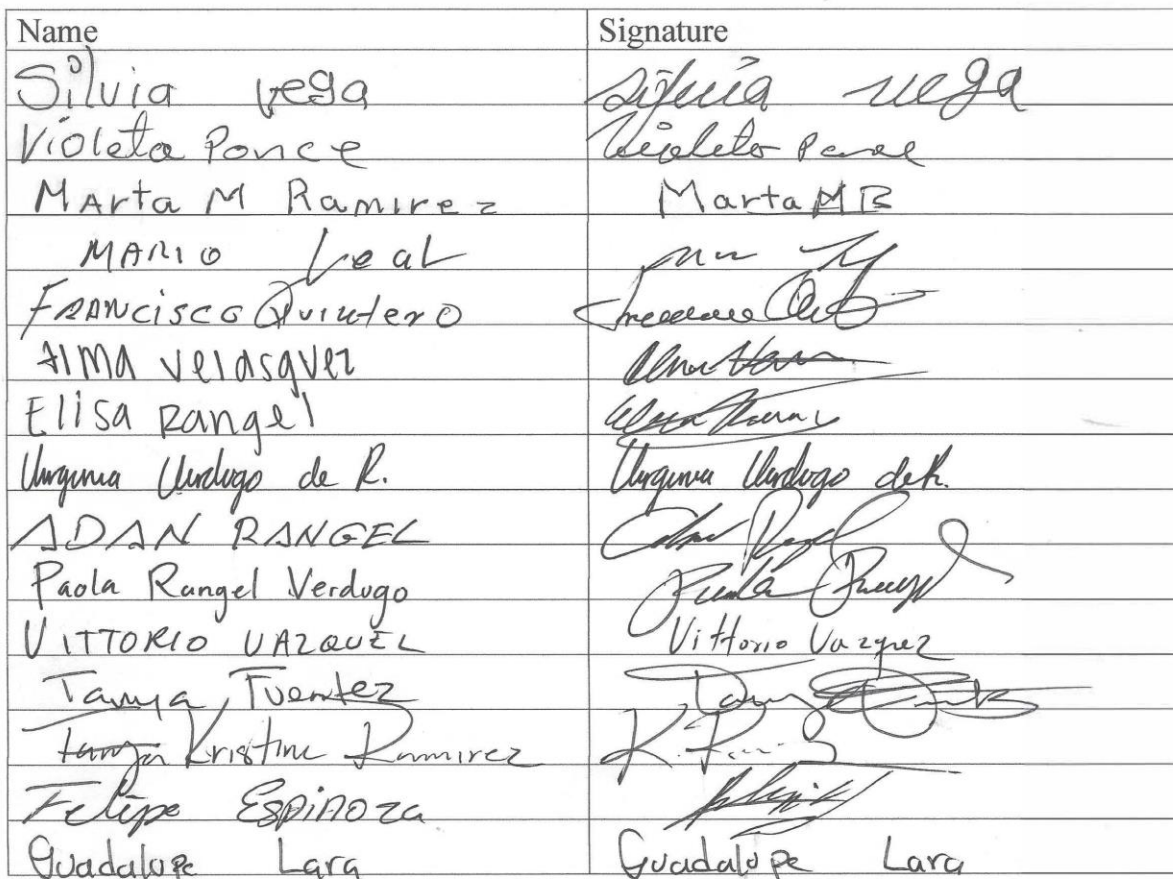 Name Signature
Silvia vega Silvia vega
Violeta Ponce Violeta Ponce
MArta M Ramirez Marta M R
MARIO LeaL
FRANCISCO Quintero
AlMA VelasqVez
Elisa Rangel
Virginia Verdugo de R. Virginia Verdugo de R.
ADAN RANGEL
Paola Rangel Verdugo
VITTORIO VAZQUEZ Vittorio Vazquez
Tanya Fuentez
Tanya Kristine Ramirez
Felipe Espinoza
Guadalupe Lara Guadalupe Lara